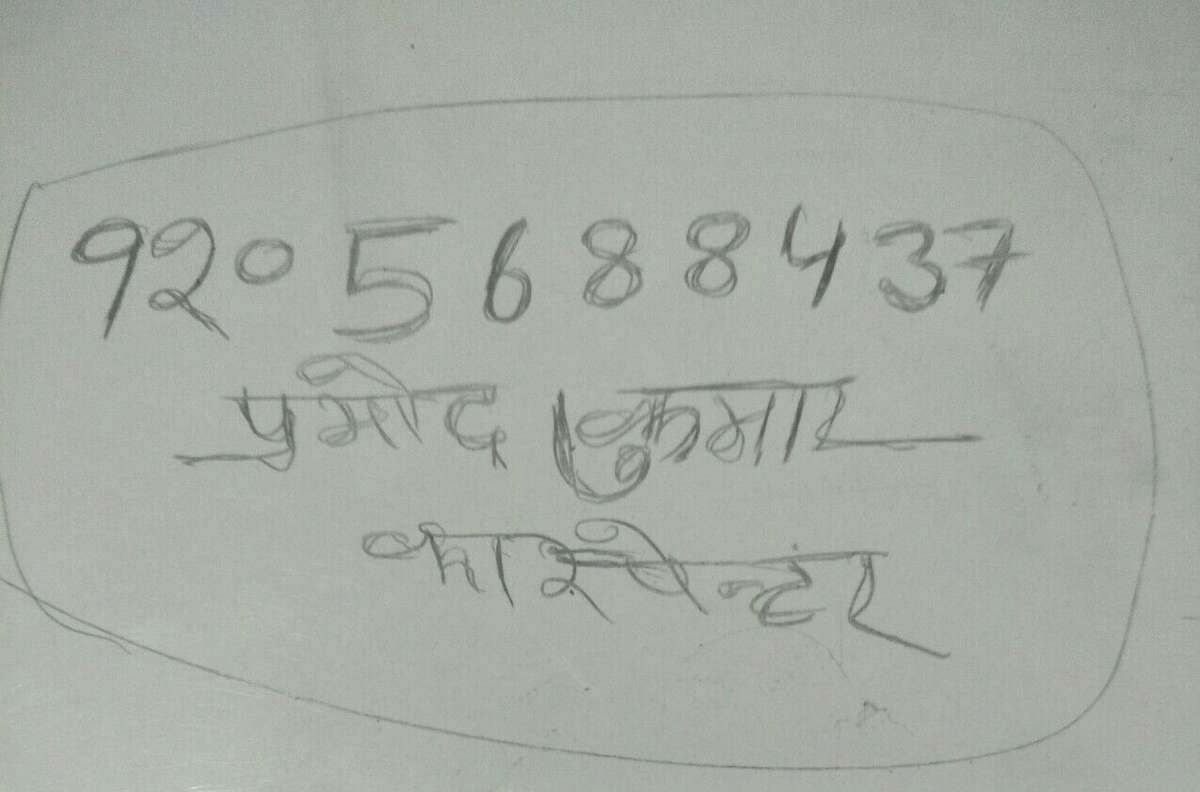 9205688437
प्रमोद कुमार
कारपेन्टर